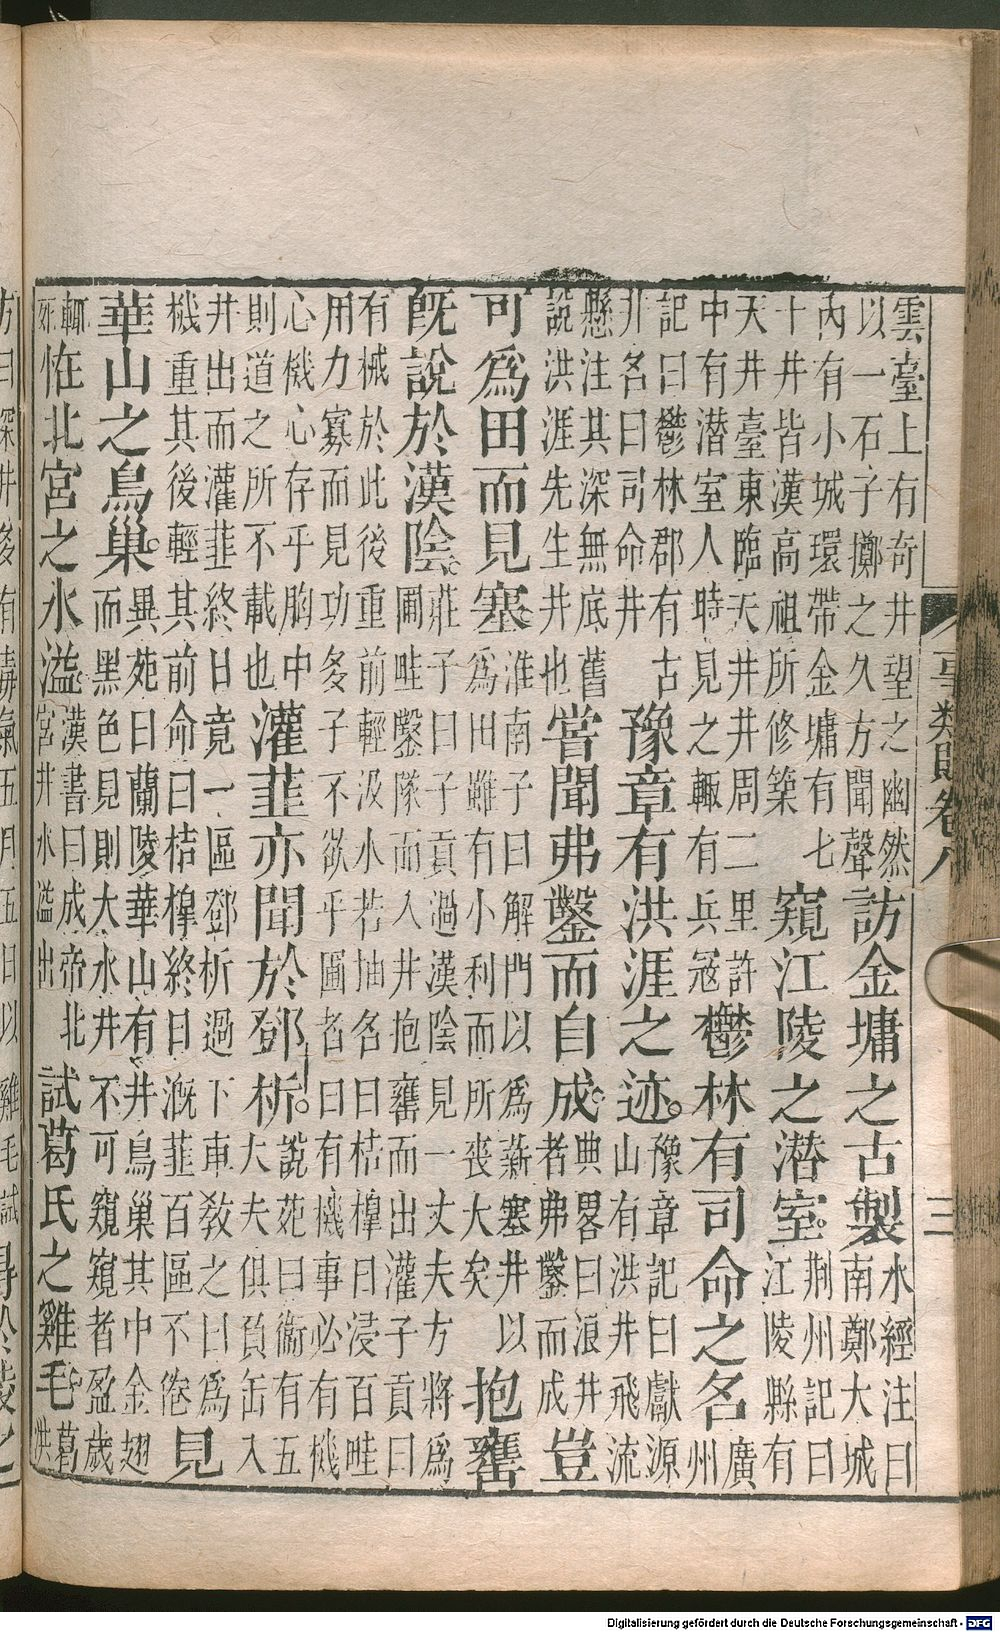 雲臺上有奇井望之幽然
以一石子擲之久方聞聲
訪金墉之古製
水經注曰
南鄭大城
內有小城環帶金墉有七
十井皆漢高祖所修築
窺江陵之潛室
荆州記曰
江陵縣有
天井臺東臨天井井周二里許
中有潛室人時見之輙有兵冦
鬱林有司命之名
廣
州
記曰鬱林郡有古
井名曰司命井
豫章有洪涯之迹
豫章記曰獻源
山有洪井飛流
懸注其深無底舊
說洪涯先生井也
嘗聞弗鑿而自成
典畧曰浪井
者弗鑿而成
豈
可爲田而見塞
淮南子曰解門以爲薪塞井以
爲田雖有小利而所喪大矣
抱罋
旣說於漢陰
莊子曰子貢過漢陰見一丈夫方將爲
圃畦鑿隧而入井抱罋而出灌子貢曰
有械於此後重前輕汲水若抽名曰桔槹曰浸百畦
用力寡而見功多子不欲乎圖者曰有機事必有機
心機心存乎胸中
則道之所不載也
灌韮亦聞於鄧析
說苑曰衞有五
大夫俱負缶入
井出而灌韮終日竟一區鄧析過下車教之曰爲
機重其後輕其前命曰桔槹終日漑韮百區不倦
見
華山之鳥巢
異苑曰蘭陵華山有井鳥巢其中金翅
而黑色見則大水井不可窺窺者盈歲
輙
死
恠北宮之水溢
漢書曰成帝北
宮井水溢出
試葛氏之雞毛
葛
洪
事類賦卷八
三
Digitalisierung gefördert durch die Deutsche Forschungsgemeinschaft - DFG